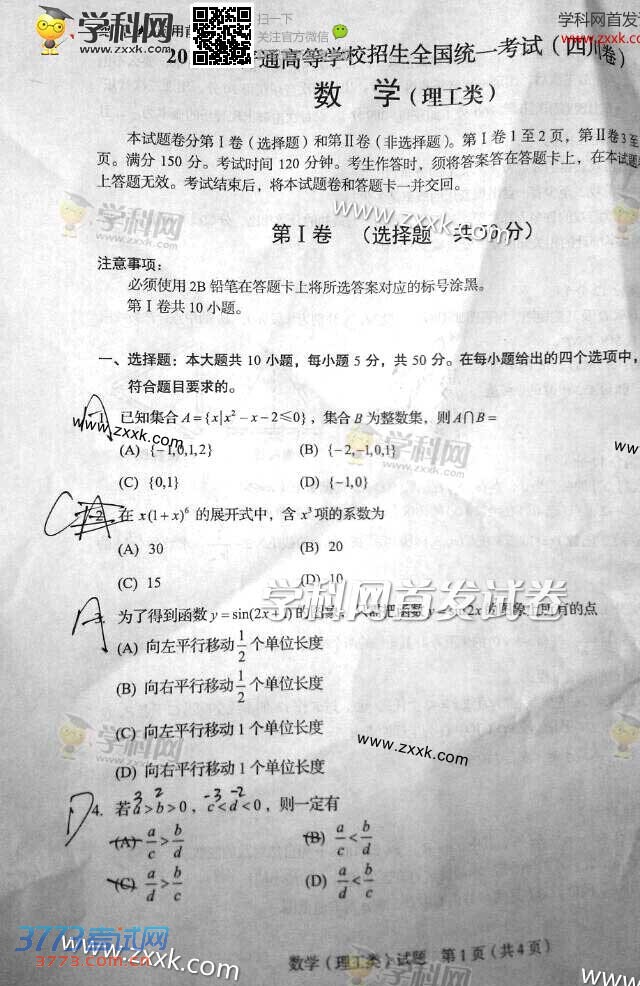 扫一下
关注官方微信
学科网首发
www.zxxk.
学科网
www.zxxk.com
20 普通高等学校招生全国统一考试(四川卷)
数 学(理工类)
本试题卷分第Ⅰ卷(选择题)和第Ⅱ卷(非选择题)。第Ⅰ卷1至2页,第Ⅱ卷3至
页。满分150分。考试时间120分钟。考生作答时,须将答案答在答题卡上,在本试题
上答题无效。考试结束后,将本试题卷和答题卡一并交回。
学科网 www.zxxk.com
第Ⅰ卷 (选择题 共50分)
注意事项:
必须使用2B铅笔在答题卡上将所选答案对应的标号涂黑。
第Ⅰ卷共10小题。
一、选择题:本大题共10小题,每小题5分,共50分。在每小题给出的四个选项中,
符合题目要求的。
A 1. 已知集合A={x|x²-x-2≤0},集合B为整数集,则A∩B=
www.zxxk.com 学科网 zxxk.com
(A) {-1,0,1,2} (B) {-2,-1,0,1}
(C) {0,1} (D) {-1,0}
C 2. 在x(1+x)⁶的展开式中,含x³项的系数为
(A) 30 (B) 20
(C) 15 (D) 10
学科网首发试卷
A 为了得到函数y=sin(2x+1)的图象,只需把函数y=sin2x的图象上所有的点
(A) 向左平行移动1/2个单位长度
(B) 向右平行移动1/2个单位长度
(C) 向左平行移动1个单位长度
学科网 zxxk.com www.zxxk.com
(D) 向右平行移动1个单位长度
3 2 -3 -2
D 4. 若a>b>0,c<d<0,则一定有
(A) a/c>b/d (B) a/c<b/d
(C) a/d>b/c (D) a/d<b/c
学科网 zxxk.com
3773考试网
3773.com.cn
www.zxxk.com
数学(理工类)试题 第1页(共4页)